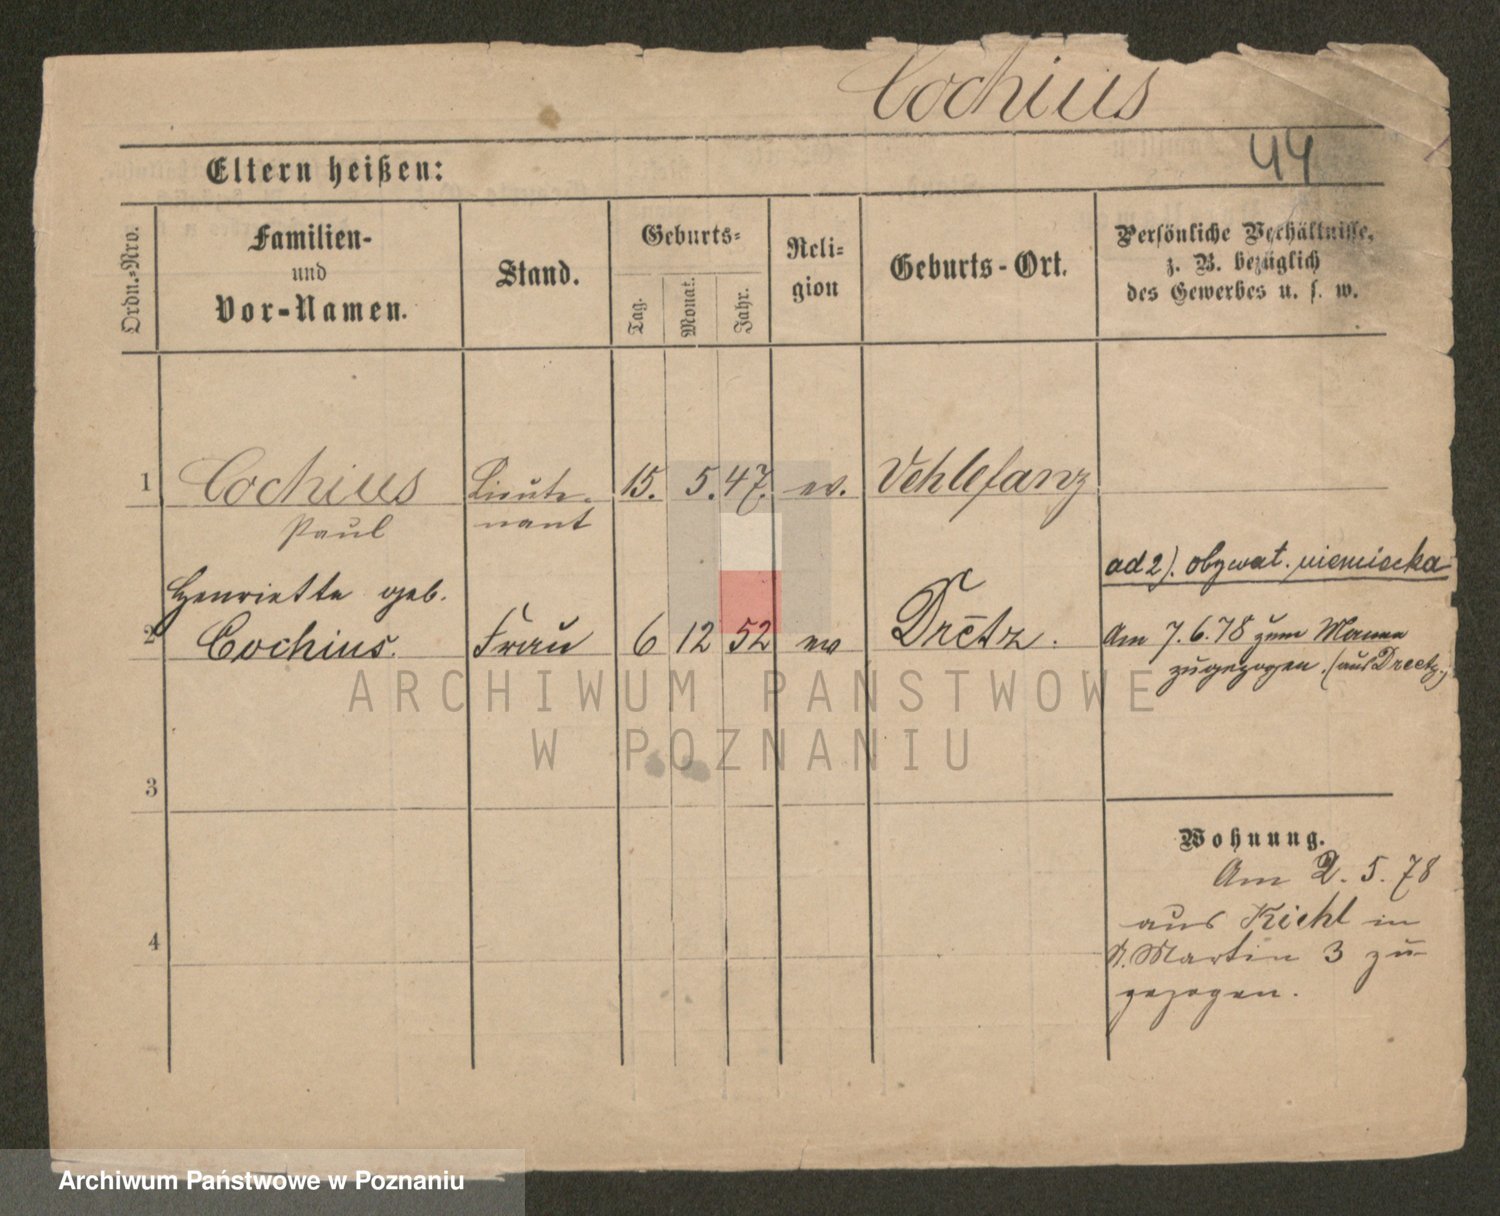 Cochius
44
Eltern heißen:
Ordn.-Nro.
Familien-
und
Vor-Namen.
Stand.
Geburts-
Tag.
Monat.
Jahr.
Reli-
gion
Geburts-Ort.
Persönliche Verhältnisse,
z. B. bezüglich
des Gewerbes u. s. w.
1 Cochius Lieute- 15. 5. 47. ev. Vehlefanz
Paul nant
ad 2). obywat. niemiecka
Henriette geb.
2 Cochius. Frau 6 12 52 ev Dretz.
Am 7.6.78 zum Manne
zugezogen. (aus Dreetz.)
ARCHIWUM PAŃSTWOWE
W POZNANIU
3
Wohnung.
Am 2. 5. 78
aus Kiehl in
St. Martin 3 zu-
gezogen.
4
Archiwum Państwowe w Poznaniu